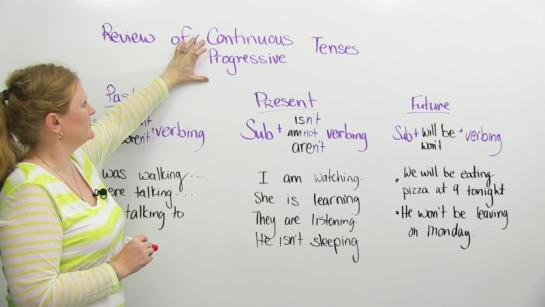 Review of Continuous Tenses
Progressive
Past Present Future
isn't
Sub+ am not verbing
aren't
Sub+ will be + verbing
won't
+verbing
was walking...
talking...
talking to
I am watching.
She is learning
They are listening.
He isn't sleeping
• We will be eating
pizza at 9 tonight
• He won't be leaving
on Monday.